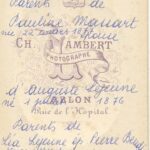 Parents de
Pauline Massart
née 22 mars 18
épouse
CH. LAMBERT
PHOTOGRAPHE
d'Auguste Lejeune
né 1 1876
SALON
Rue de l'Hôpital
Parents de
Léa Lejeune ep Pierre